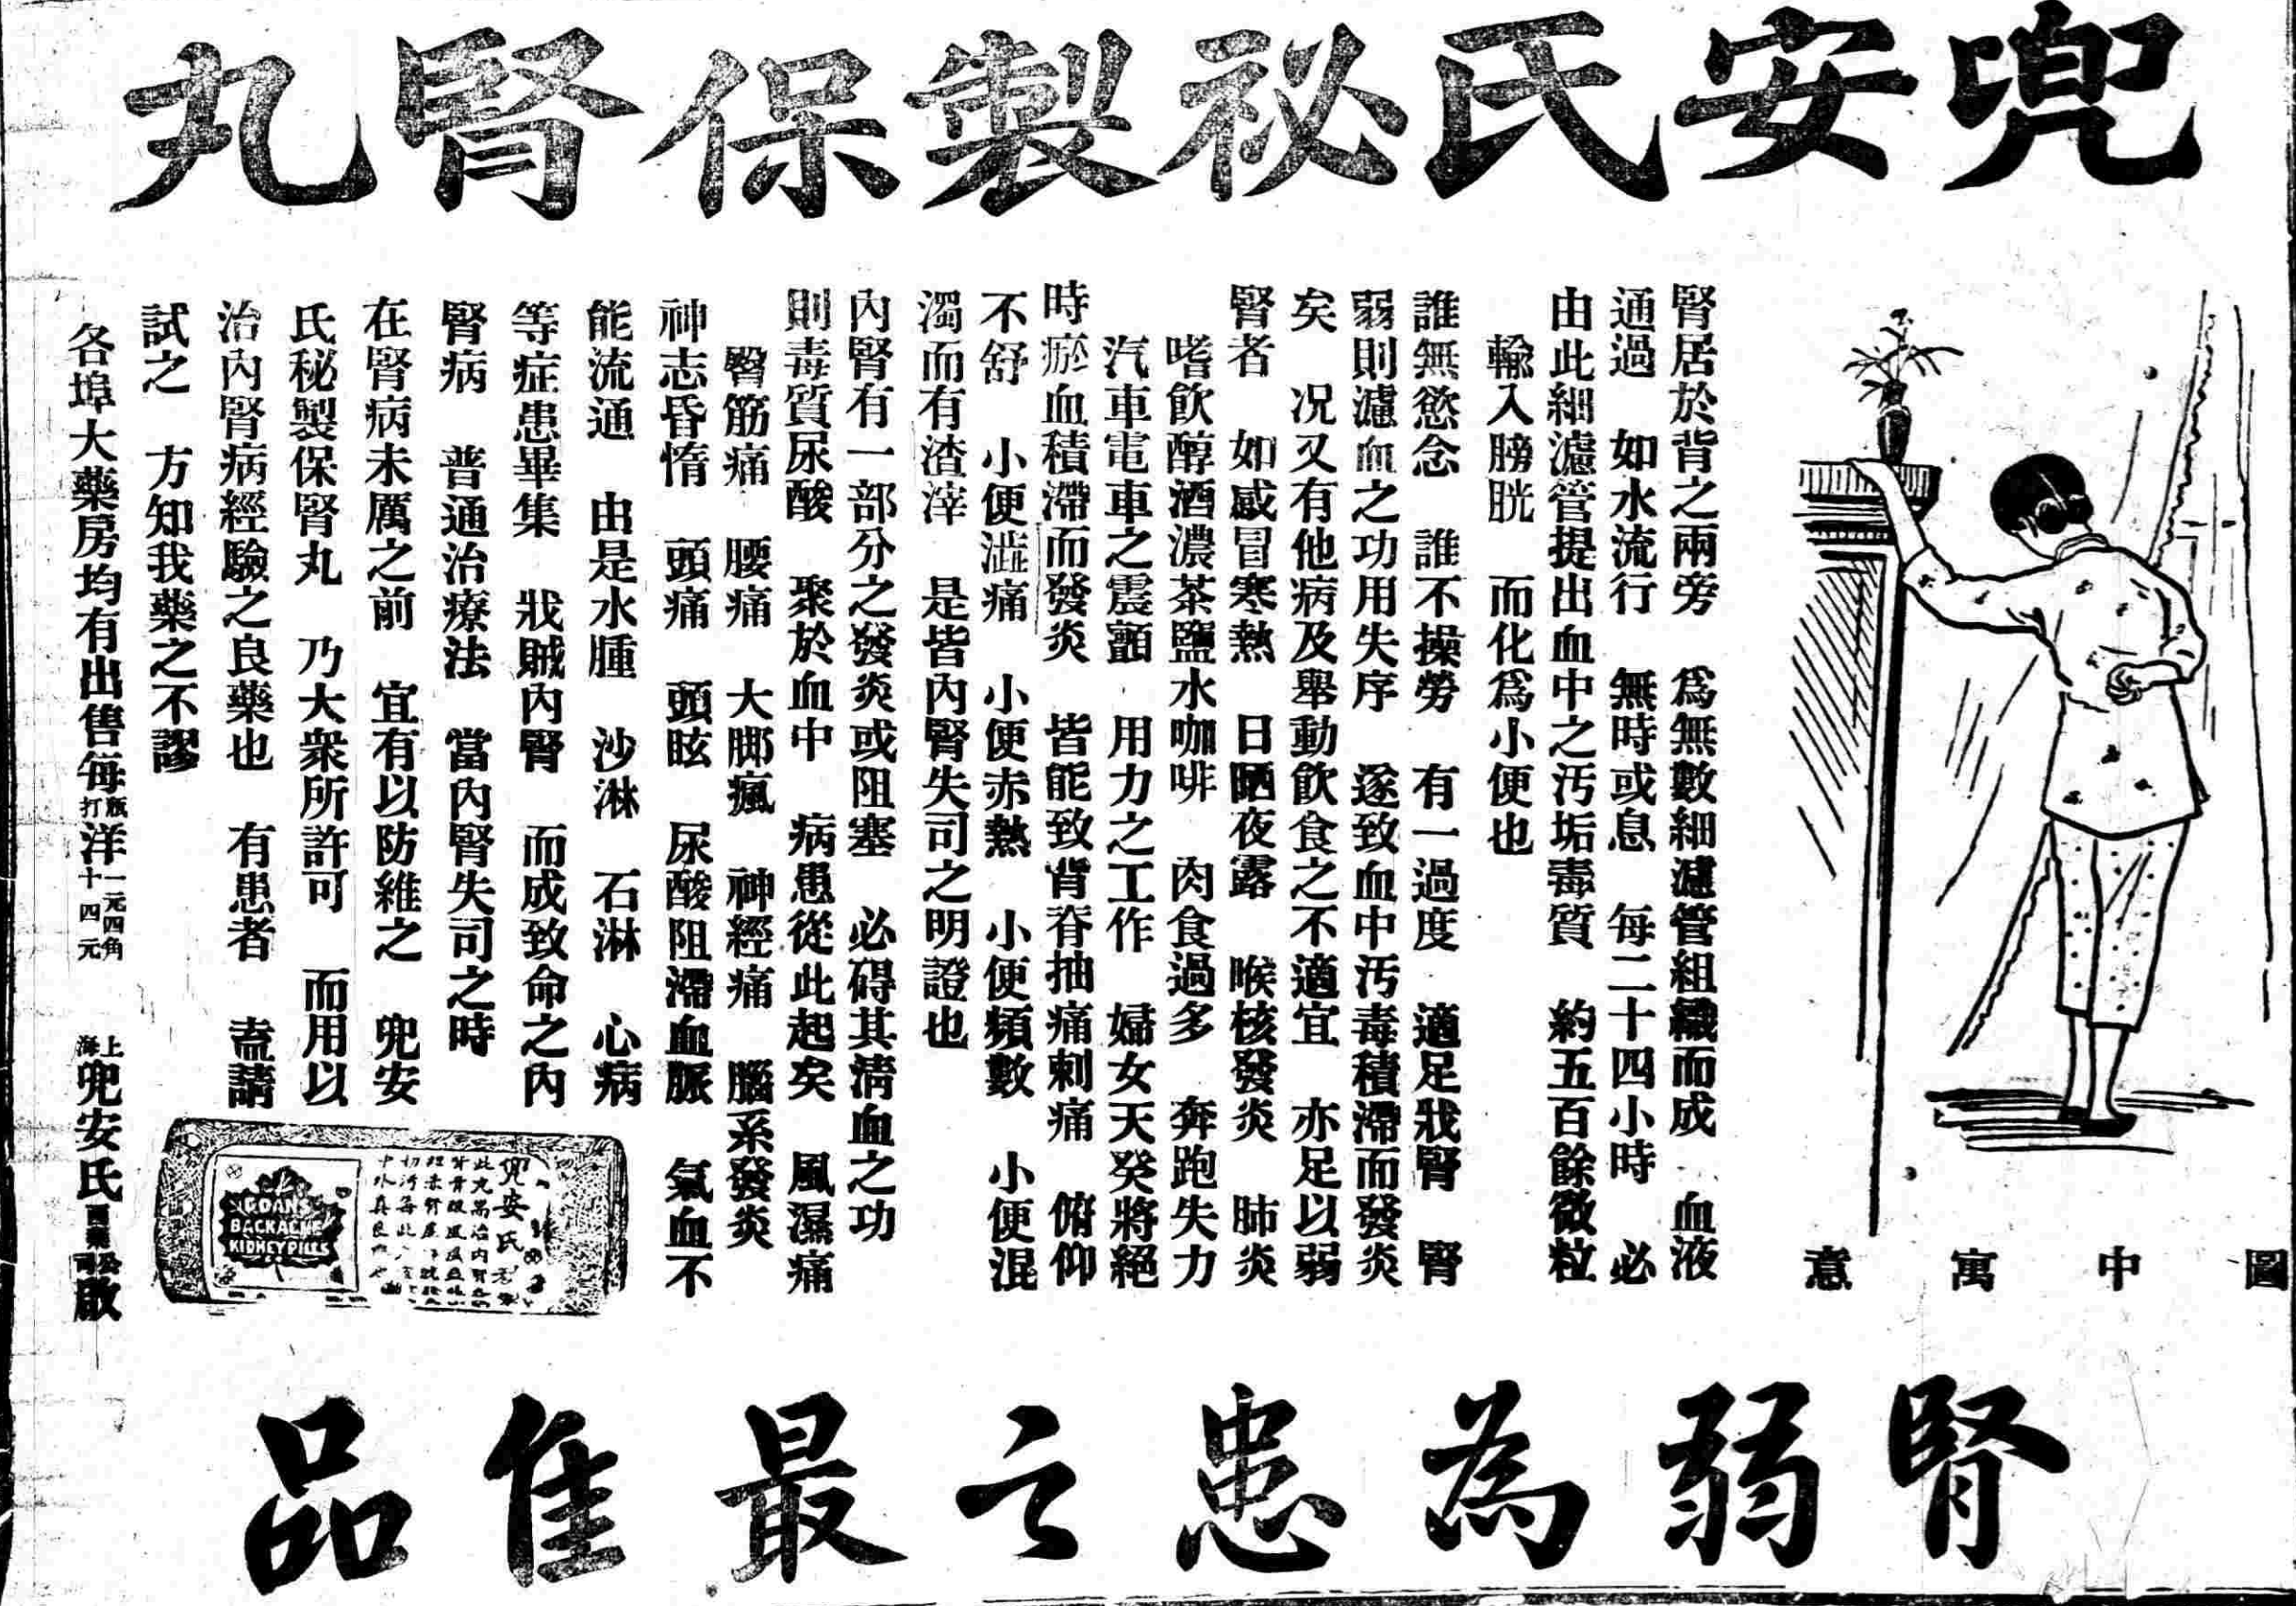 兜安氏祕製保腎丸
圖中寓意
腎居於背之兩旁　爲無數細濾管組織而成　血液
通過　如水流行　無時或息　每二十四小時　必
由此細濾管提出血中之汚垢毒質　約五百餘微粒
輸入膀胱　而化爲小便也
誰無慾念　誰不操勞　有一過度　適足戕腎　腎
弱則濾血之功用失序　遂致血中汚毒積滯而發炎
矣　况又有他病及舉動飲食之不適宜　亦足以弱
腎者　如感冒寒熱　日晒夜露　喉核發炎　肺炎
嗜飲醇酒濃茶鹽水咖啡　肉食過多　奔跑失力
汽車電車之震顫　用力之工作　婦女天癸將絕
時瘀血積滯而發炎　皆能致背脊抽痛刺痛　俯仰
不舒　小便澁痛　小便赤熱　小便頻數　小便混
濁而有渣滓　是皆內腎失司之明證也
內腎有一部分之發炎或阻塞　必碍其淸血之功
則毒質尿酸　聚於血中　病患從此起矣　風濕痛
腎筋痛　腰痛　大脚瘋　神經痛　腦系發炎
神志昏惰　頭痛　頭眩　尿酸阻滯血脈　氣血不
能流通　由是水腫　沙淋　石淋　心病
等症患畢集　戕賊內腎　而成致命之內
腎病　普通治療法　當內腎失司之時
在腎病未厲之前　宜有以防維之　兜安
氏秘製保腎丸　乃大衆所許可　而用以
治內腎病經驗之良藥也　有患者　盍請
試之　方知我藥之不謬
各埠大藥房均有出售每瓶打洋一元四角十四元
上海兜安氏西藥公司啟
兜安氏
DOAN'S
BACKACHE
KIDNEY PILLS
腎弱為患之最佳品